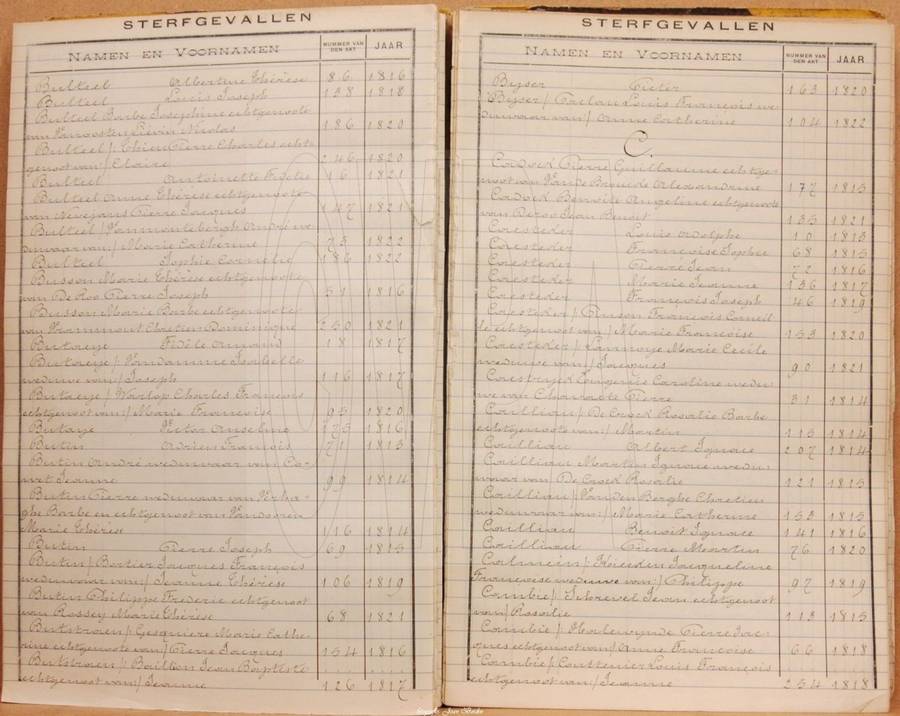 STERFGEVALLEN
NAMEN EN VOORNAMEN NUMMER VAN DEN AKT JAAR
Bulteel Albertine Thérèse 86 1816
Bulteel Louis Joseph 138 1818
Bulteel Barbe Joséphine echtgenoote
van Vanoosten Liévin Nicolas 186 1820
Bulteel / Thieu Pierre Charles echt-
genoot van / Claire 246 1820
Bulteel Antoinette Fidélie 16 1821
Bulteel Anne Thérèse echtgenoote
van Nevejans Pierre Jacques 147 1821
Bulteel / Vanmontebergh André we-
duwaar van / Marie Catherine 73 1822
Bulteel Sophie Cornélie 186 1822
Busson Marie Thérèse echtgenoote
van De Roo Pierre Joseph 31 1816
Busson Marie Barbe echtgenoote
van Chrétien Dominique 250 1821
Butaeye Fidèle Armand 18 1817
Butaeye / Vandamme Isabelle
weduwe van / Joseph 116 1817
Butaeye / Warlop Charles François
echtgenoot van / Marie Françoise 95 1820
Butaye Victor Anselme 175 1816
Butin Adrien François 71 1813
Butin André weduwaar van
Jeanne 99 1814
Butin Pierre weduwaar van Verha-
ghe Barbe en echtgenoot van Vandooren
Marie Thérèse 116 1814
Butin Pierre Joseph 69 1815
Butin / Bartier Jacques François
weduwaar van / Jeanne Thérèse 106 1819
Butin Philippe Frédéric echtgenoot
van Rossey Marie Thérèse 68 1821
Butstraen / Gesquiere Marie Cathe-
rine echtgenoote van / Pierre Jacques 154 1816
Butstraen / Baillion Jean Baptiste
echtgenoot van / Jeanne 126 1817
STERFGEVALLEN
NAMEN EN VOORNAMEN NUMMER VAN DEN AKT JAAR
Byser Pieter 163 1820
Byser / Louis François we-
duwaar van / Anne Catherine 104 1822
C.
Cadoek Pierre Guillaume echtge-
noot van Van de Alexandrine 177 1815
Cadoek Benoite Angeline echtgenoote
van Deroo Jean Benoit 135 1821
Caesteker Louis Adolphe 10 1813
Caesteker Françoise Sophie 68 1815
Caesteker Pierre Jean 72 1816
Caesteker Marie Jeanne 136 1817
Caesteker François Joseph 46 1819
Caesteker / François Corneil-
le echtgenoot van / Marie Françoise 153 1820
Caesteker / Lannoye Marie Cécile
weduwe van / Jacques 90 1821
Caestryck Eugénie Caroline wedu-
we van Pierre 31 1814
Cailliau / De Crock Rosalie Barbe
echtgenoote van / Martin 115 1814
Cailliau Albert Ignace 207 1814
Cailliau Martin Ignace wedu-
waar van De Crock Rosalie 121 1815
Cailliau / Van den Berghe Chrétien
weduwaar van / Marie Catherine 153 1815
Cailliau Benoit Ignace 141 1816
Cailliau Pierre Martin 76 1820
Calmein / Jacqueline
Françoise weduwe van / Philippe 97 1819
Cambie / Schrevel Jean echtgenoot
van / Rosalie 113 1815
Cambie / Halewynde Pierre Jac-
ques echtgenoot van / Anne Françoise 66 1818
Cambie / Couttenier Louis François
echtgenoot van / Jeanne 254 1818